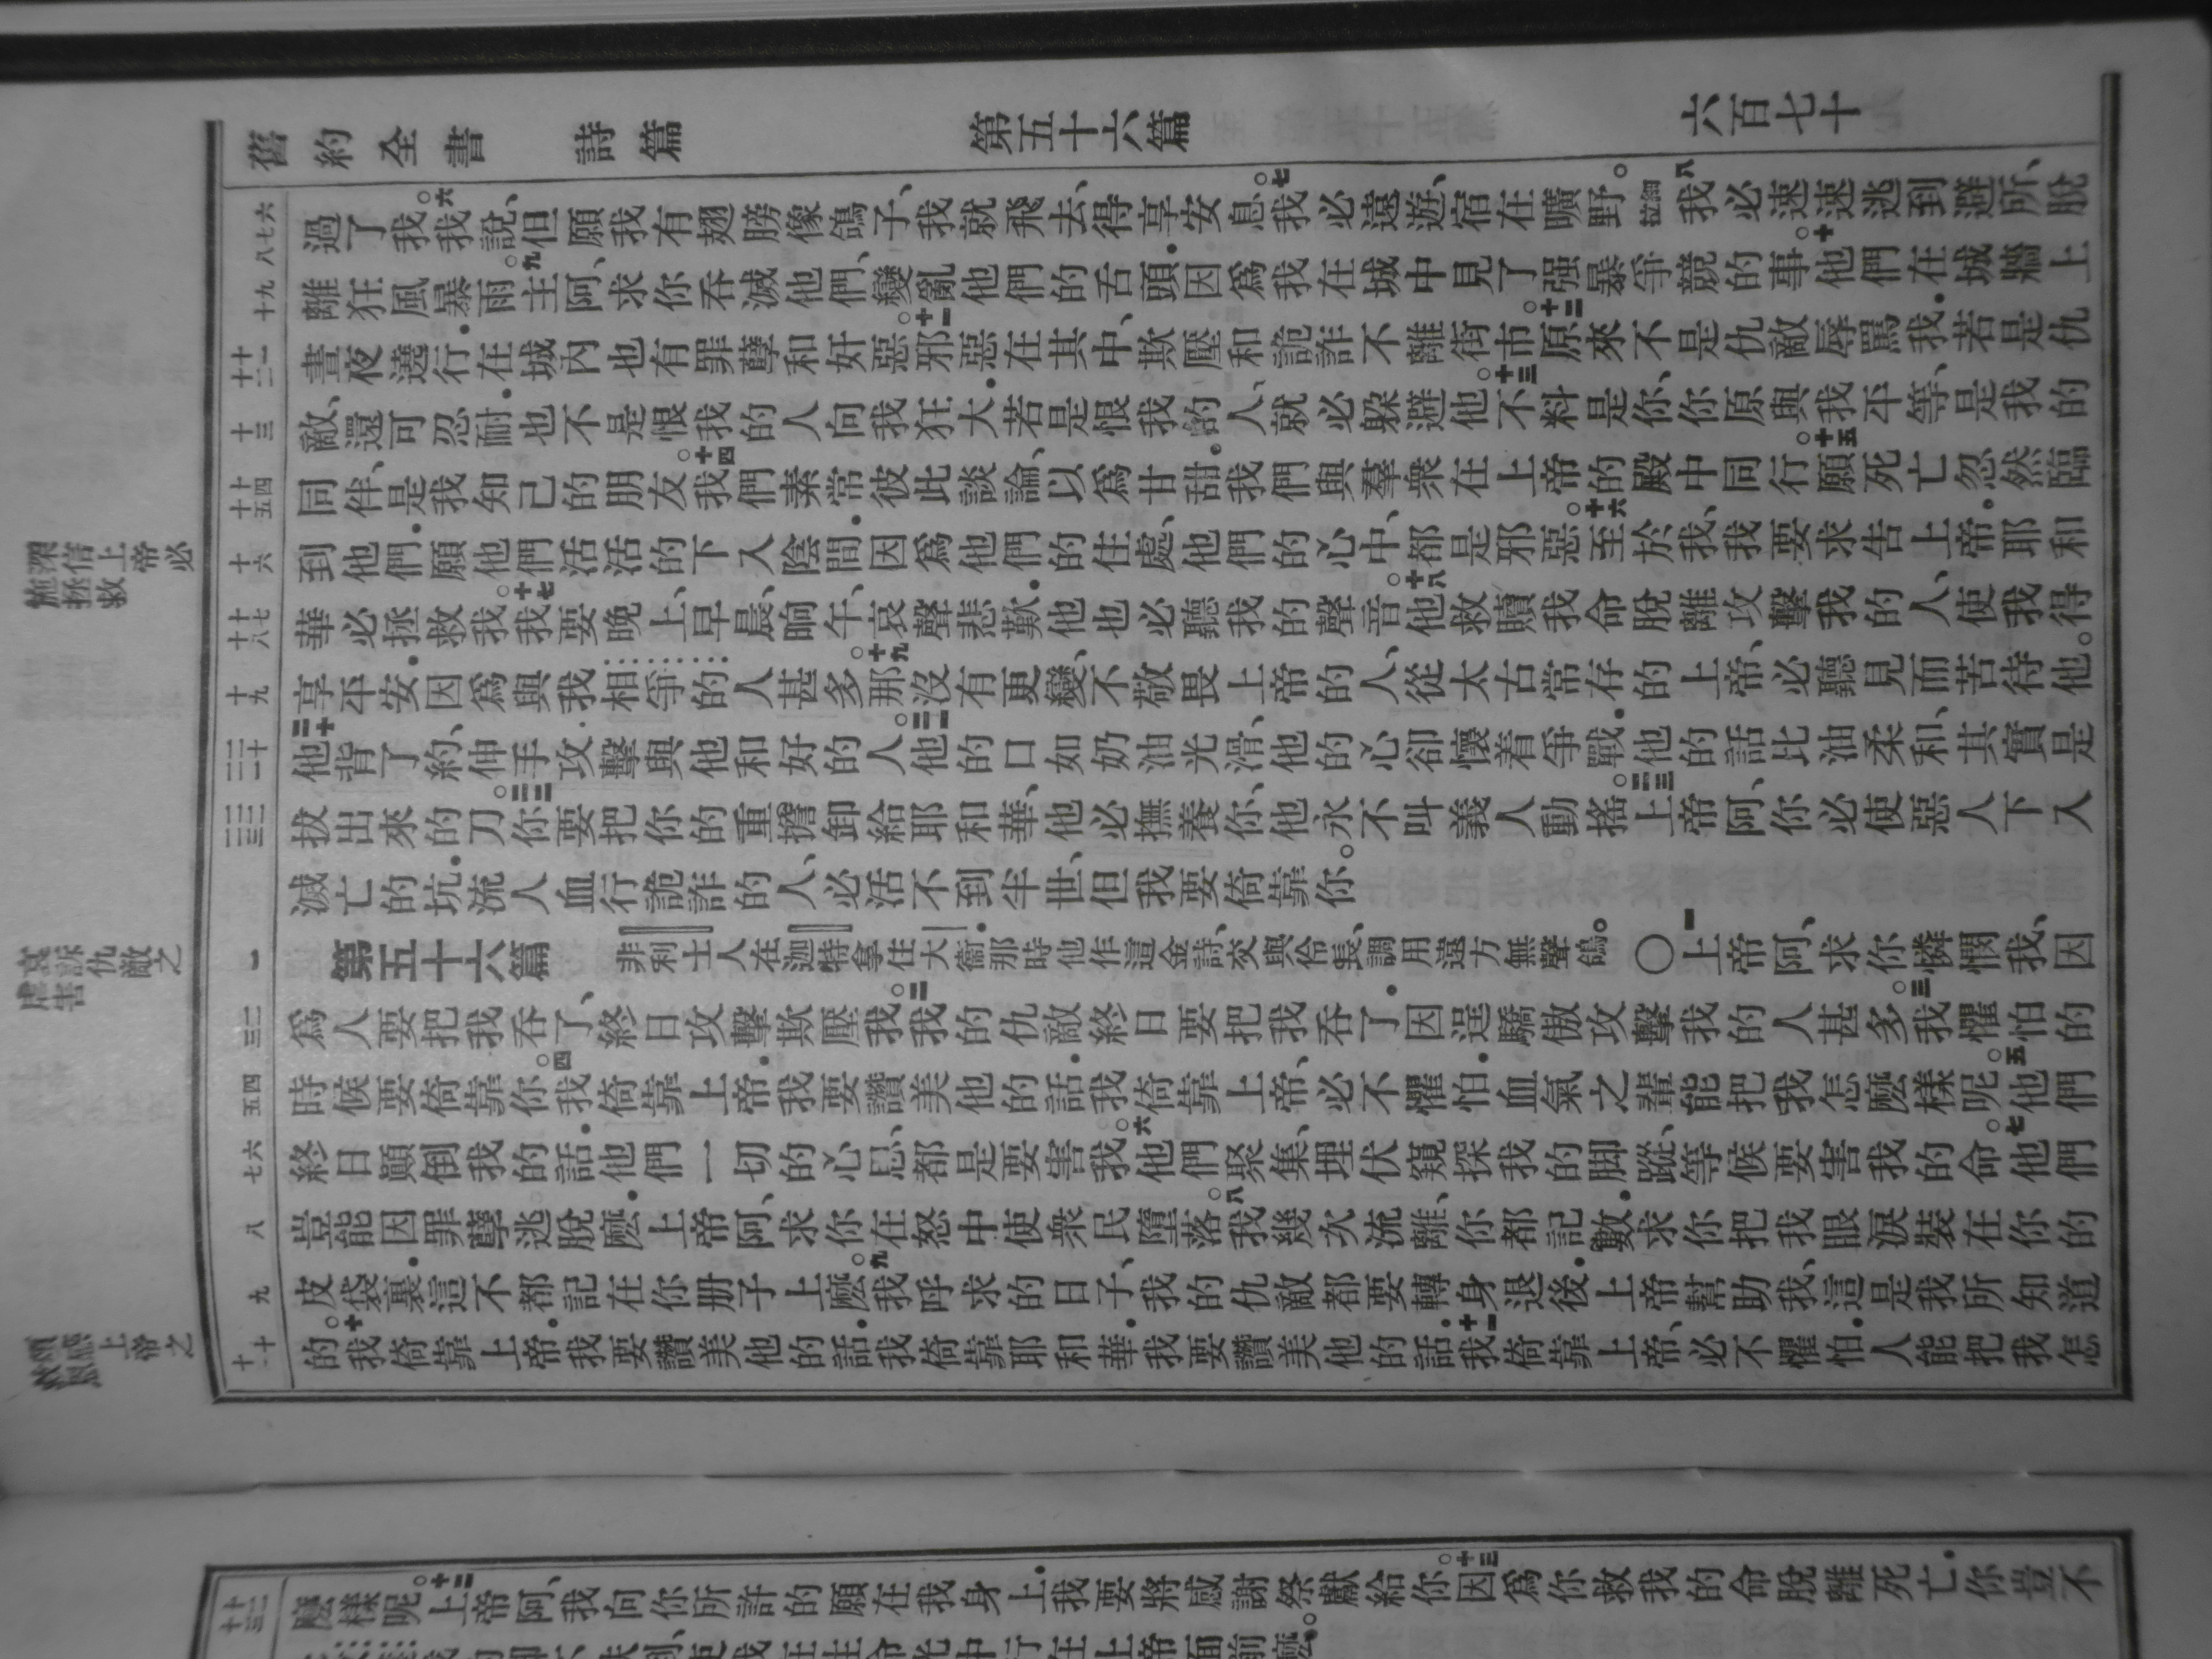 舊約全書 詩篇 第五十六篇 六百七十
六七八
過了我。六我說、但願我有翅膀像鴿子、我就飛去、得享安息。七我必遠遊、宿在曠野。細拉八我必速速逃到避所、脫
九十
離狂風暴雨。九主阿、求你吞滅他們、變亂他們的舌頭．因爲我在城中見了强暴爭競的事。十他們在城牆上
十一十二
晝夜遶行．在城內也有罪孽和奸惡。十一邪惡在其中、欺壓和詭詐不離街市。十二原來不是仇敵辱罵我．若是仇
十三
敵、還可忍耐．也不是恨我的人向我狂大．若是恨我的人、就必躲避他。十三不料是你、你原與我平等、是我的
十四十五
同伴、是我知己的朋友。十四我們素常彼此談論、以爲甘甜．我們與羣衆在上帝的殿中同行。十五願死亡忽然臨
十六
到他們．願他們活活的下入陰間．因爲他們的住處、他們的心中、都是邪惡。十六至於我、我要求告上帝．耶和
十七十八
華必拯救我。十七我要晚上、早晨、晌午、哀聲悲歎．他也必聽我的聲音。十八他救贖我命脫離攻擊我的人、使我得
十九
享平安．因爲與我相爭的人甚多。十九那沒有更變、不敬畏上帝的人、從太古常存的上帝、必聽見而苦待他。
二十二一
二十他背了約、伸手攻擊與他和好的人。二一他的口如奶油光滑、他的心卻懷着爭戰．他的話比油柔和、其實是
二二二三
拔出來的刀。二二你要把你的重擔卸給耶和華、他必撫養你、他永不叫義人動搖。二三上帝阿、你必使惡人下入
滅亡的坑．流人血行詭詐的人、必活不到半世、但我要倚靠你。
一
第五十六篇 非利士人在迦特拿住大衞．那時他作這金詩、交與伶長、調用遠方無聲鴿。〇一上帝阿、求你憐憫我、因
二三
爲人要把我吞了、終日攻擊欺壓我。二我的仇敵終日要把我吞了．因逞驕傲攻擊我的人甚多。三我懼怕的
四五
時候要倚靠你。四我倚靠上帝．我要讚美他的話．我倚靠上帝、必不懼怕．血氣之輩能把我怎麽樣呢。五他們
六七
終日顚倒我的話．他們一切的心思、都是要害我。六他們聚集、埋伏窺探我的脚蹤、等候要害我的命。七他們
八
豈能因罪孽逃脫麽．上帝阿、求你在怒中使衆民墮落。八我幾次流離、你都記數．求你把我眼淚裝在你的
九
皮袋裏．這不都記在你册子上麽。九我呼求的日子、我的仇敵都要轉身退後．上帝幫助我、這是我所知道
十十一
的。十我倚靠上帝．我要讚美他的話．我倚靠耶和華．我要讚美他的話．十一我倚靠上帝、必不懼怕．人能把我怎
深信上帝必
施拯救
哀訴仇敵之
虐害
頌感上帝之
十二十三
麽樣呢。十二上帝阿、我向你所許的願在我身上．我要將感謝祭獻給你。十三因爲你救我的命脫離死亡．你豈不